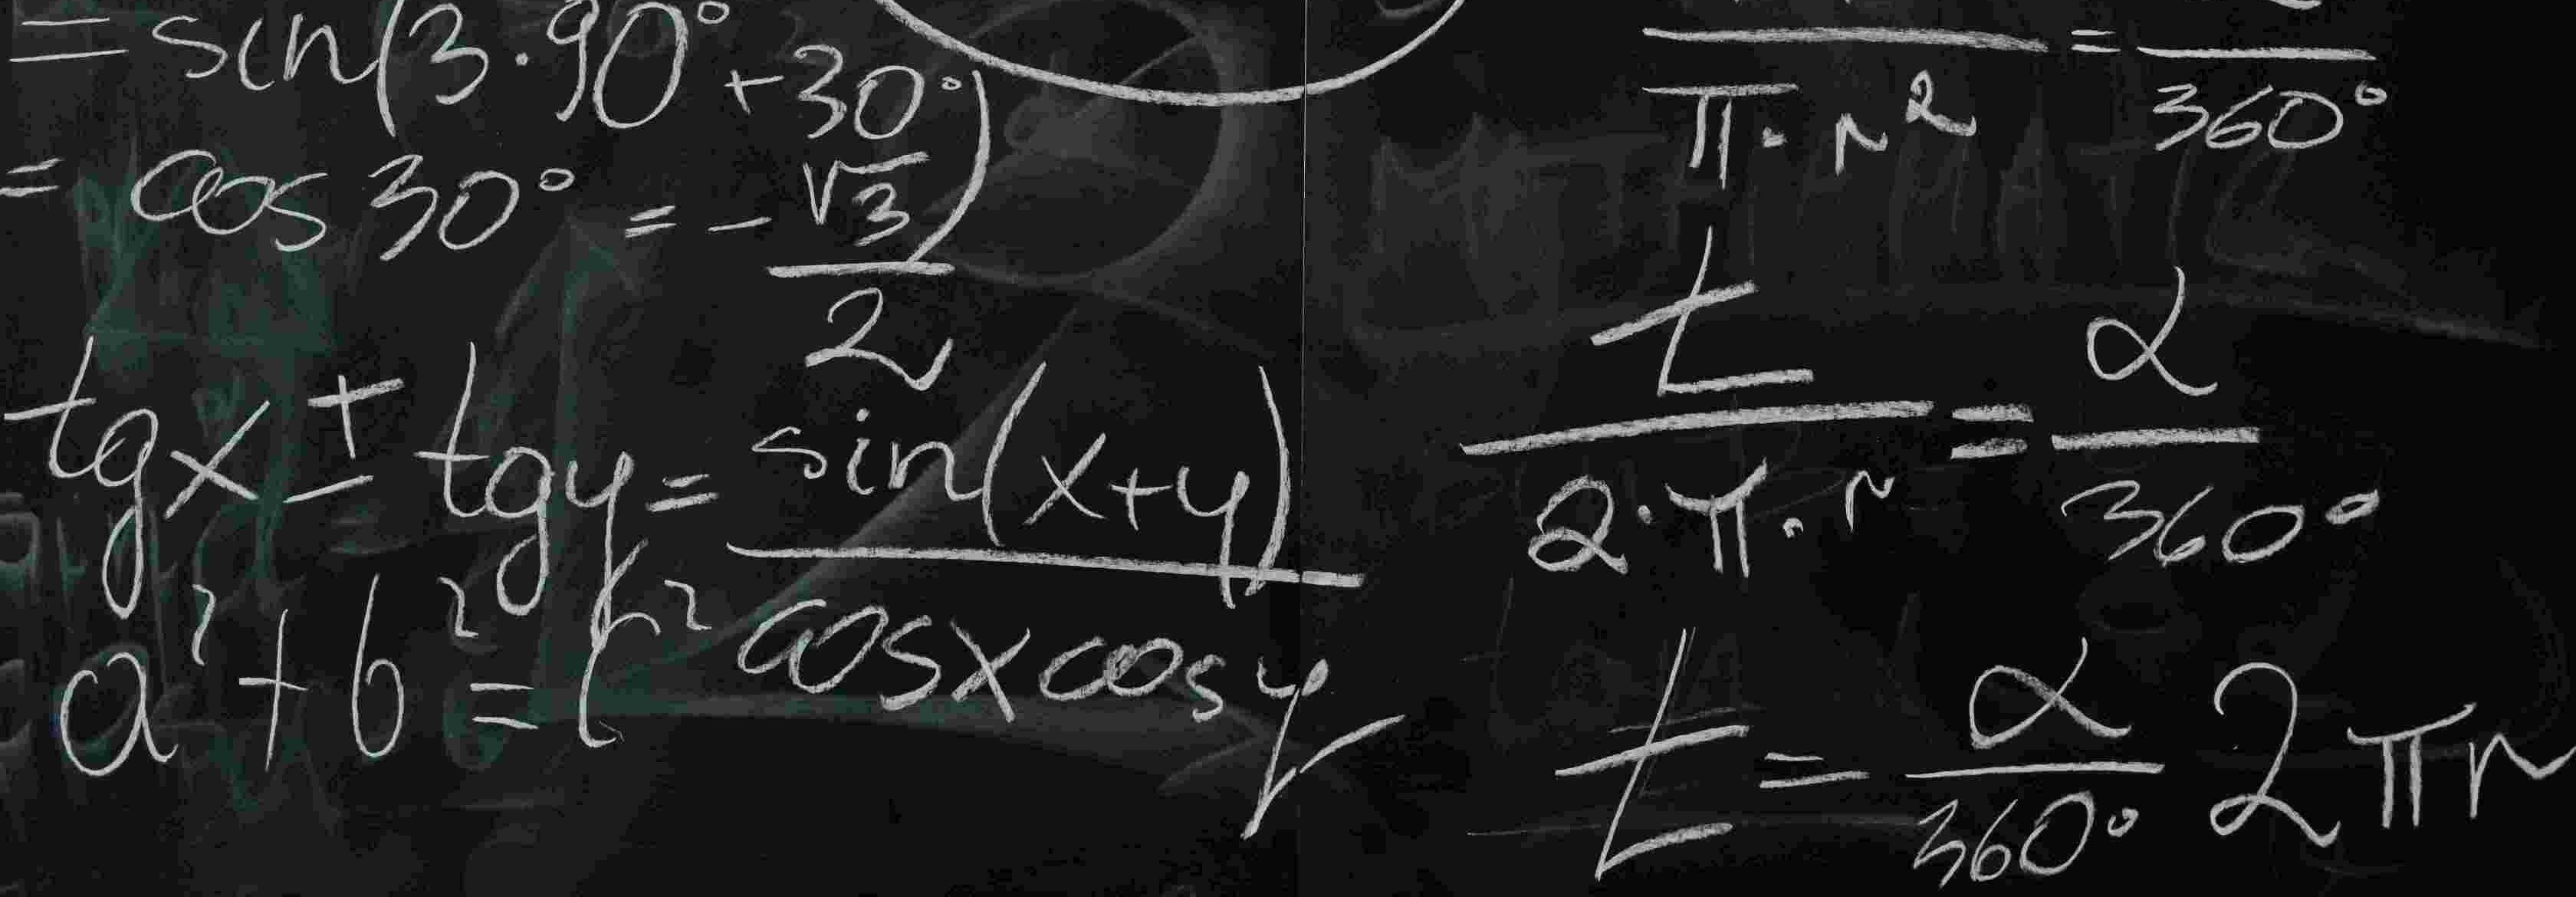 = sin(3·90°+30°)
= cos 30° = -√3/2
tgx ± tgy = sin(x+y)/cosx cosy
a²+b²=c²
/π·r² = /360°
t/2·π·r = α/360°
t = α/360° 2πr